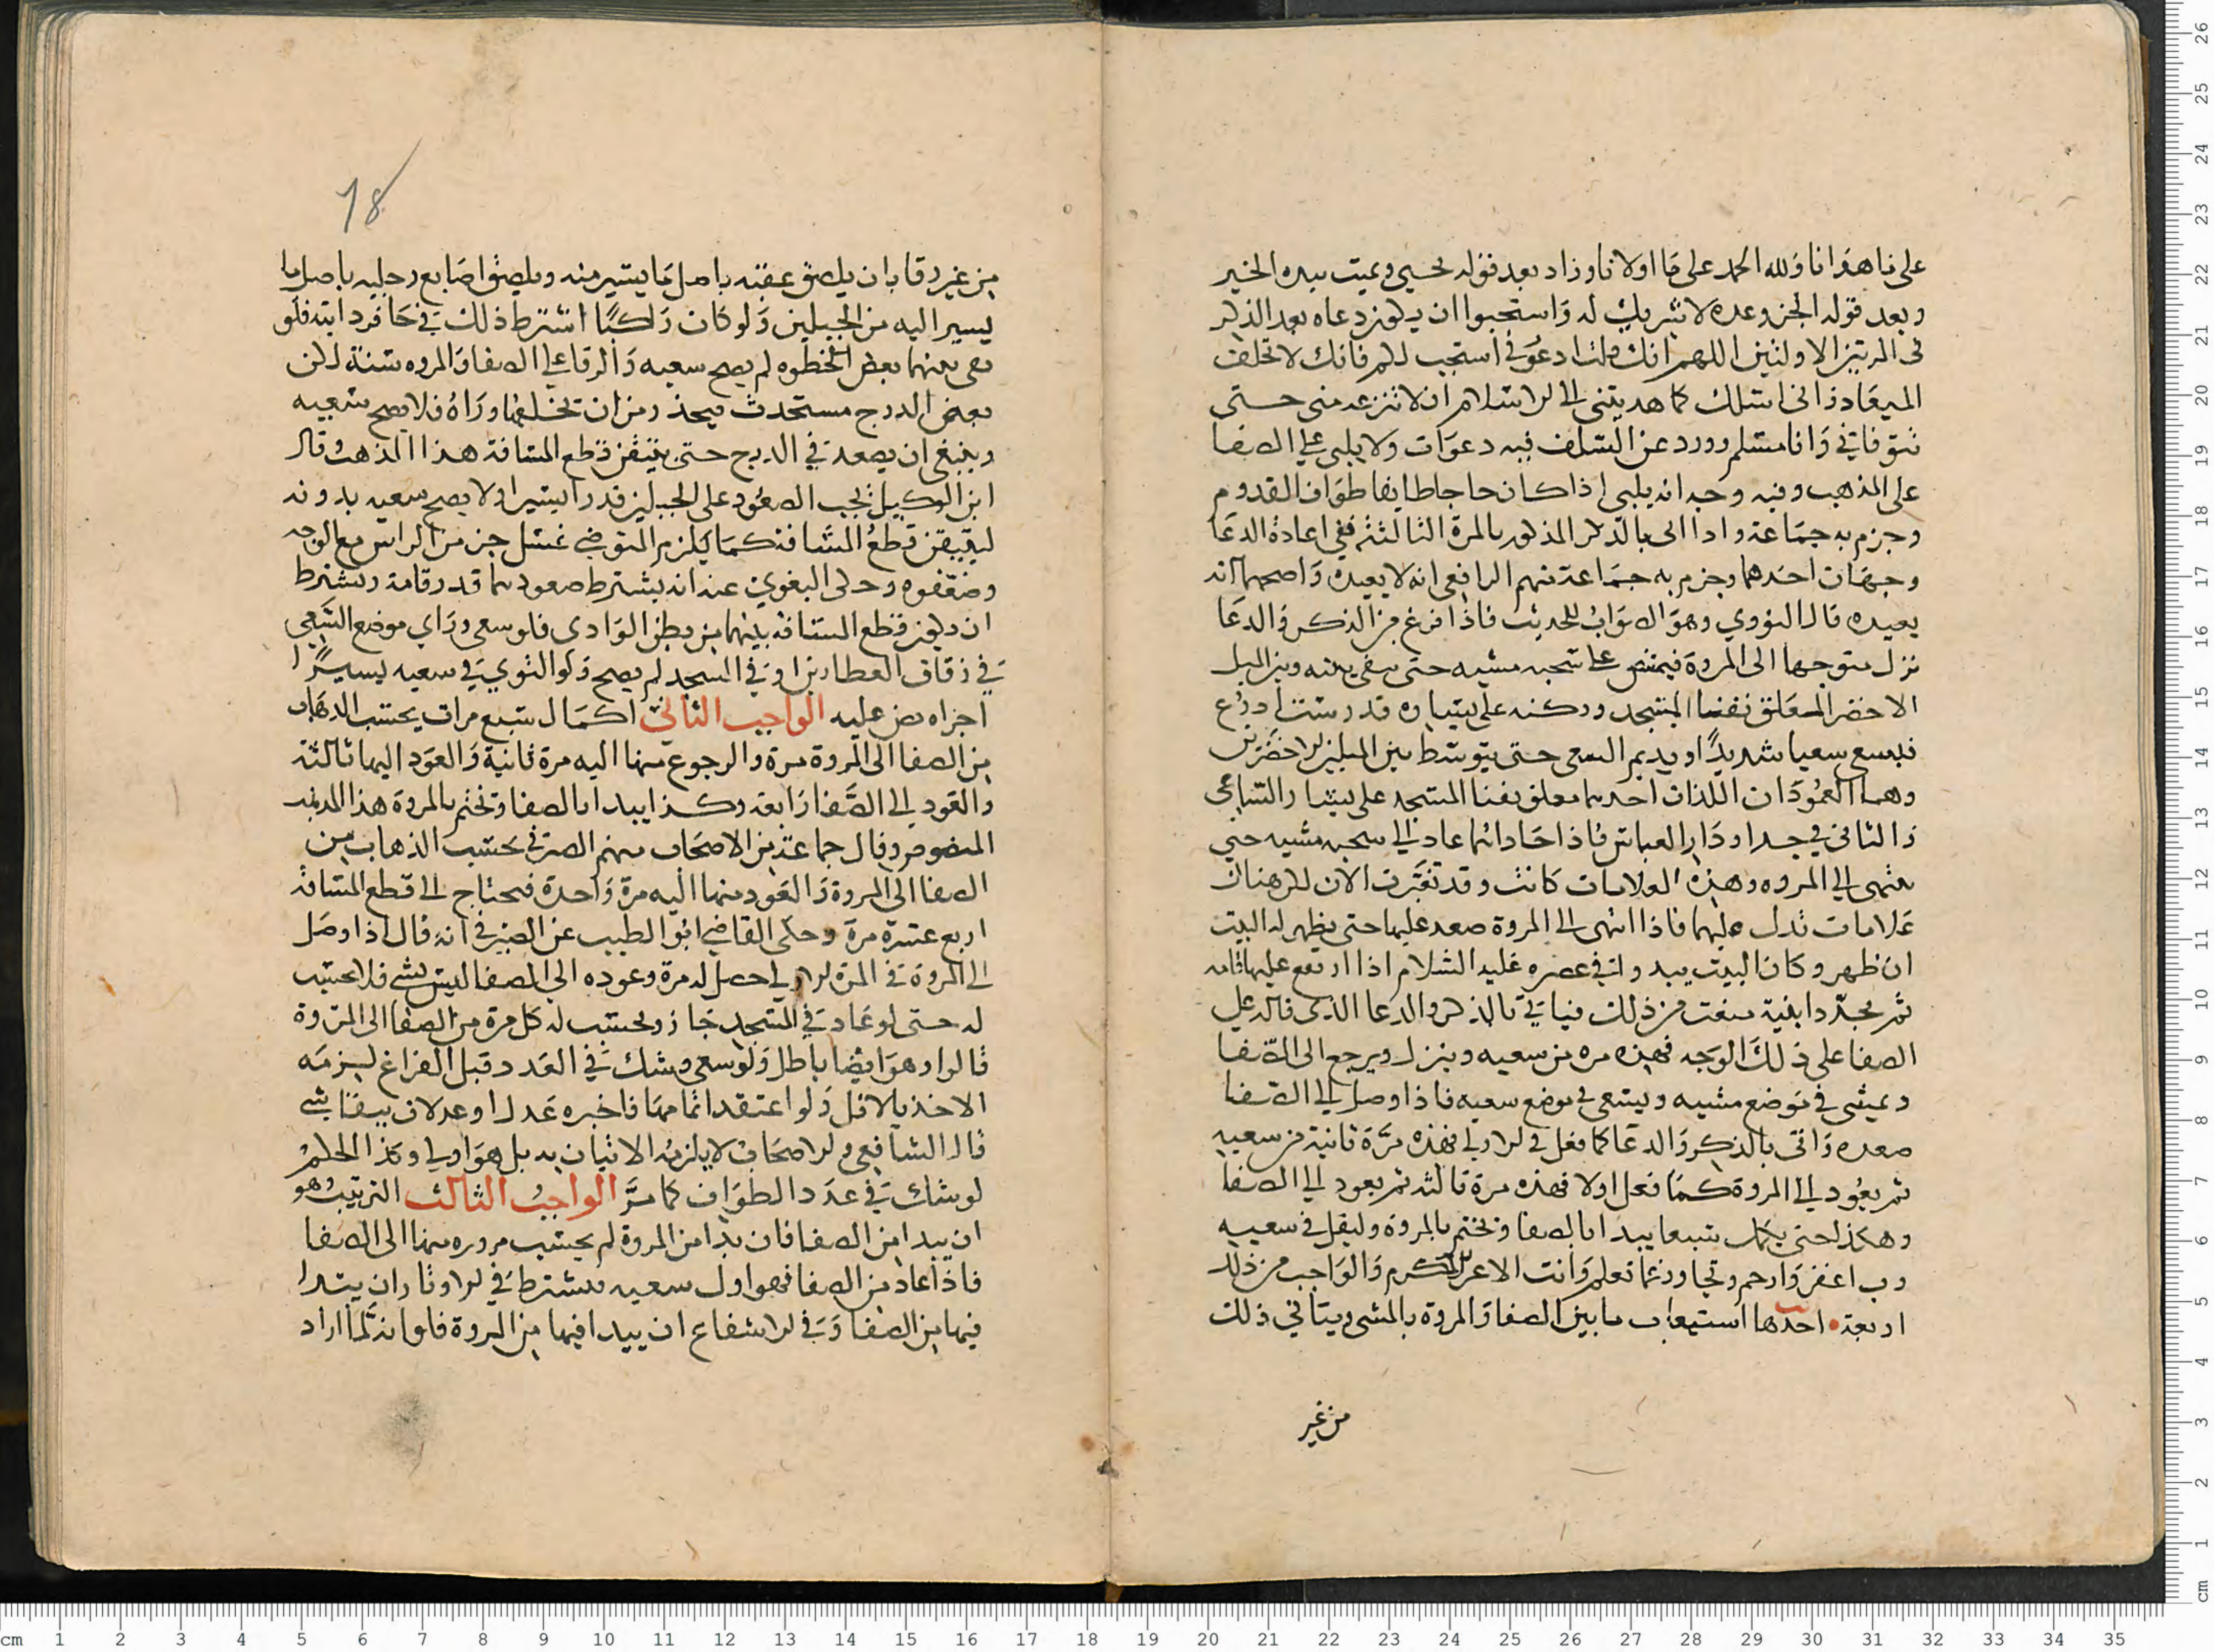 على ما هدانا ولله الحمد على ما اولانا وزاد بعد قوله يحيي ويميت بيده الخير
وبعد قوله انجز وعده لا شريك له واستحبوا ان يكون دعاه بعد الذكر
في المرتين الاولتين اللهم انك قلت ادعوني استجب لكم فانك لا تخلف
الميعاد واني اسئلك كما هديتني الى الاسلام ان لا تنزعه مني حتى
تتوفاني وانا مسلم وورد عن السلف فيه دعوات ولا يلبي على الصفا
على المذهب وفيه وجه انه يلبي اذا كان حاجا طايفا طواف القدوم
وجزم به جماعة واذا اتى بالذكر المذكور بالمرة الثالثة ففي اعادة الدعا
وجهان احدهما وجزم به جماعة منهم الرافعي انه لا يعيده واصحهما انه
يعيده قال النووي وهو الصواب للحديث فاذا فرغ من الذكر والدعا
نزل متوجها الى المروة فيمشي على سجيه مشيه حتى يبقى بينه وبين الميل
الاخضر المعلق بفنا المسجد وركنه على يساره قدر ست اذرع
فيسع سعيا شديدا ويديم السعي حتى يتوسط بين الميلين الاخضرين
وهما العمودان اللذان احدهما معلق بفنا المسجد على يسار الساعي
والثاني في جدار دار العباس فاذا حاذاهما عاد الى سجيه مشيه حتي
ينتهي الى المروه وهذه العلامات كانت وقد تغيرت الان لكن هناك
علامات تدل عليهما فاذا انتهى الى المروة صعد عليها حتى يظهر له البيت
ان ظهر وكان البيت يبدو له في عصره عليه السلام اذا ارتفع عليها قامه
ثم تجدد ابنية منعت من ذلك فياتي بالذكر والدعا الذي قاله على
الصفا على ذلك الوجه فهذه مره من سعيه وينزل ويرجع الى الصفا
ويمشي في موضع مشيه ويسعى في موضع سعيه فاذا وصل الى الصفا
صعده واتى بالذكر والدعا كما فعل في الاولى فهذه مرة ثانية من سعيه
ثم يعود الى المروة كما فعل اولا فهذه مرة ثالثه ثم يعود الى الصفا
وهكذا حتى يكمل سبعا يبدا بالصفا ويختم بالمروة وليقل في سعيه
رب اغفر وارحم وتجاوز عما تعلم وانت الاعز الاكرم والواجب من ذلك
اربعة احدها استيعاب ما بين الصفا والمروة بالمشي ويتاتي ذلك
من غير
78
من غير رقا بان يلصق عقبه باصل ما يسير منه ويلصق اصابع رجليه باصل ما
يسير اليه من الجبلين ولو كان راكبا اشترط ذلك في حافر دابته فلو
بقي بينهما بعض الخطوه لم يصح سعيه والرقا على الصفا والمروه سنة لكن
بعض الدرج مستحدث فيحذر من ان يخلفها وراه فلا يصح سعيه
وينبغي ان يصعد في الدرج حتى يتيقن قطع المسافة هذا المذهب وقال
ابن الوكيل يجب الصعود على الجبلين قدرا يسيرا ولا يصح سعيه بدونه
ليتيقن قطع المسافة كما يلزم المتوضي غسل جز من الراس مع الوجه
وضعفوه وحكى البغوي عنه انه يشترط صعودهما قدر قامة ويشترط
ان يكون قطع المسافة بينهما من بطن الوادى فلو سعى وراي موضع السعي
في زقاق العطارين او في المسجد لم يصح ولو التوي في سعيه يسيرا
اجزاه نص عليه الواجب الثاني اكمال سبع مرات يحتسب الذهاب
من الصفا الى المروة مرة والرجوع منها اليه مرة ثانية والعود اليها ثالثة
والعود الى الصفا رابعة وكذا يبدا بالصفا وتختم بالمروة هذا المذهب
المنصوص وقال جماعة من الاصحاب منهم الصيرفي يحتسب الذهاب من
الصفا الى المروة والعود منها اليه مرة واحدة فيحتاج الى قطع المسافة
اربع عشرة مرة وحكى القاضي ابو الطيب عن الصيرفي انه قال اذا وصل
الى المروة في المرة الاولى حصل له مرة وعوده الى الصفا ليس بشي فلا يحتسب
له حتى لو عاد في المسجد جاز ويحتسب له كل مرة من الصفا الى المروة
قالوا وهو ايضا باطل ولو سعى وشك في العدد قبل الفراغ لزمه
الاخذ بالاقل ولو اعتقد اتمامها فاخبره عدل او عدلان ببقا شي
قال الشافعي والاصحاب لا يلزمه الاتيان به بل هو اولى وكذا الحكم
لو شك في عدد الطواف كما مر الواجب الثالث الترتيب وهو
ان يبدا من الصفا فان بدا من المروة لم يحتسب مروره منها الى الصفا
فاذا عاد من الصفا فهو اول سعيه فيشترط في الاوتار ان يبتدا
فيها من الصفا وفي الاشفاع ان يبدا فيها من المروة فلو انه لما اراد